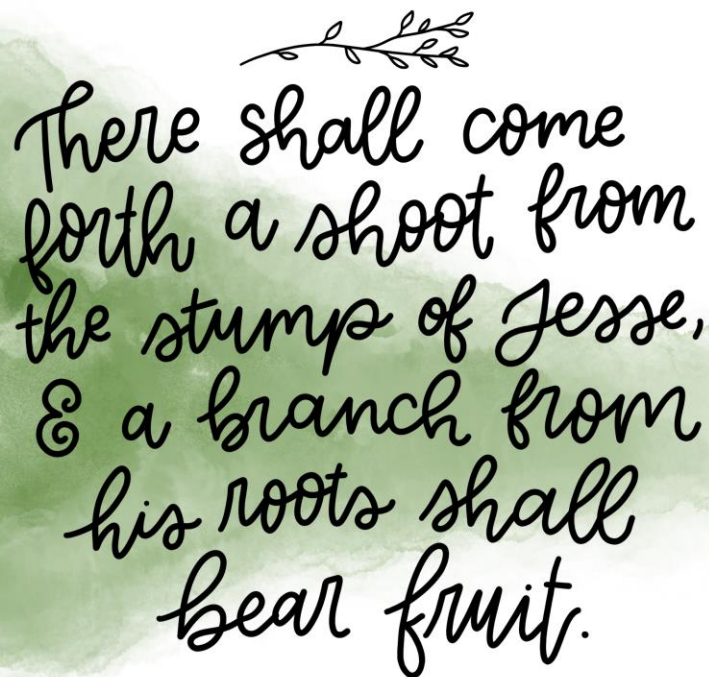 There shall come
forth a shoot from
the stump of Jesse,
& a branch from
his roots shall
bear fruit.